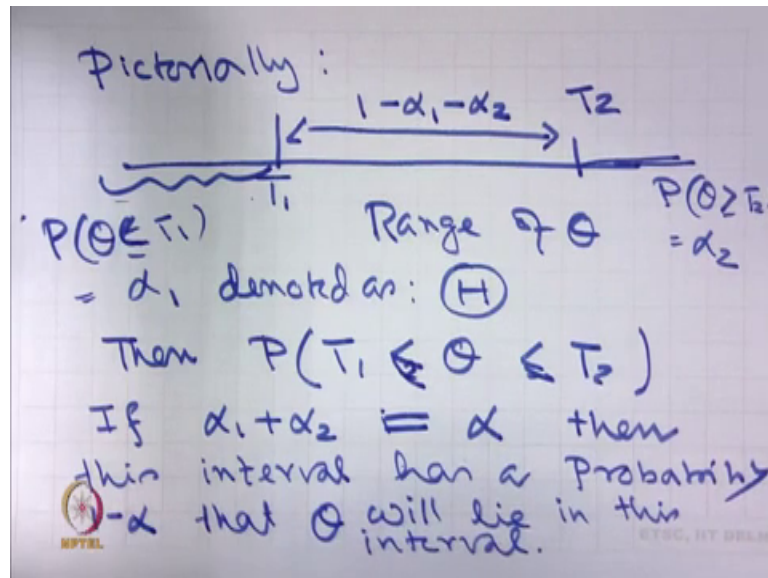 Pictorially :
1 - α₁ - α₂
T2
T₁
P(θ ≤ T₁)
Range of θ
P(θ ≥ T₂
= α₂
= α₁ denoted as : Ⓗ
Then P(T₁ ≤ θ ≤ T₂)
If α₁ + α₂ = α then
this interval has a Probability
1-α that θ will lie in this
interval.
NPTEL
ETSC, IIT DELH